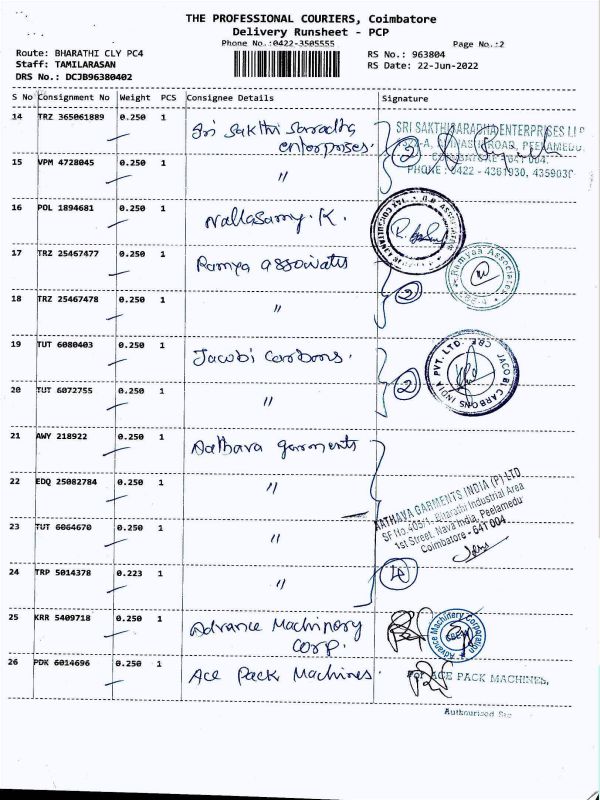 THE PROFESSIONAL COURIERS, Coimbatore
Delivery Runsheet - PCP
Phone No.:0422-3505555
Page No.:2
Route: BHARATHI CLY PC4
RS No.: 963804
Staff: TAMILARASAN
RS Date: 22-Jun-2022
DRS No.: DCJB96380402
S No Consignment No Weight PCS Consignee Details Signature
14 TRZ 365061889 0.250 1 Sri Sakthi Saradha
enterprises.
2
SRI SAKTHI SARADHA ENTERPRISES LLP
ROAD, PEELAMEDU
641 004.
PHONE : 0422 - 4261930,
15 VPM 4728045 0.250 1 "
16 POL 1894681 0.250 1 Nallasamy. K.
17 TRZ 25467477 0.250 1 Ramya associates
Ramyaa Associates
18 TRZ 25467478 0.250 1 "
2
19 TUT 6080403 0.250 1 Jacobi Carbons.
JACOBI CARBONS INDIA PVT. LTD. CBE
20 TUT 6072755 0.250 1 "
2
21 AWY 218922 0.250 1 Aathava garments
22 EDQ 25082784 0.250 1 "
AATHAVA GARMENTS INDIA (P) LTD
SF No.405/1, Bharathi Industrial Area
1st Street, Nava India, Peelamedu
Coimbatore - 641 004
23 TUT 6064670 0.250 1 "
24 TRP 5014378 0.223 1 "
4
25 KRR 5409718 0.250 1 Advance Machinery
Corp.
Advance Machinery Corporation
26 PDK 6014696 0.250 1 Ace Pack Machines.
For ACE PACK MACHINES,
Authourised